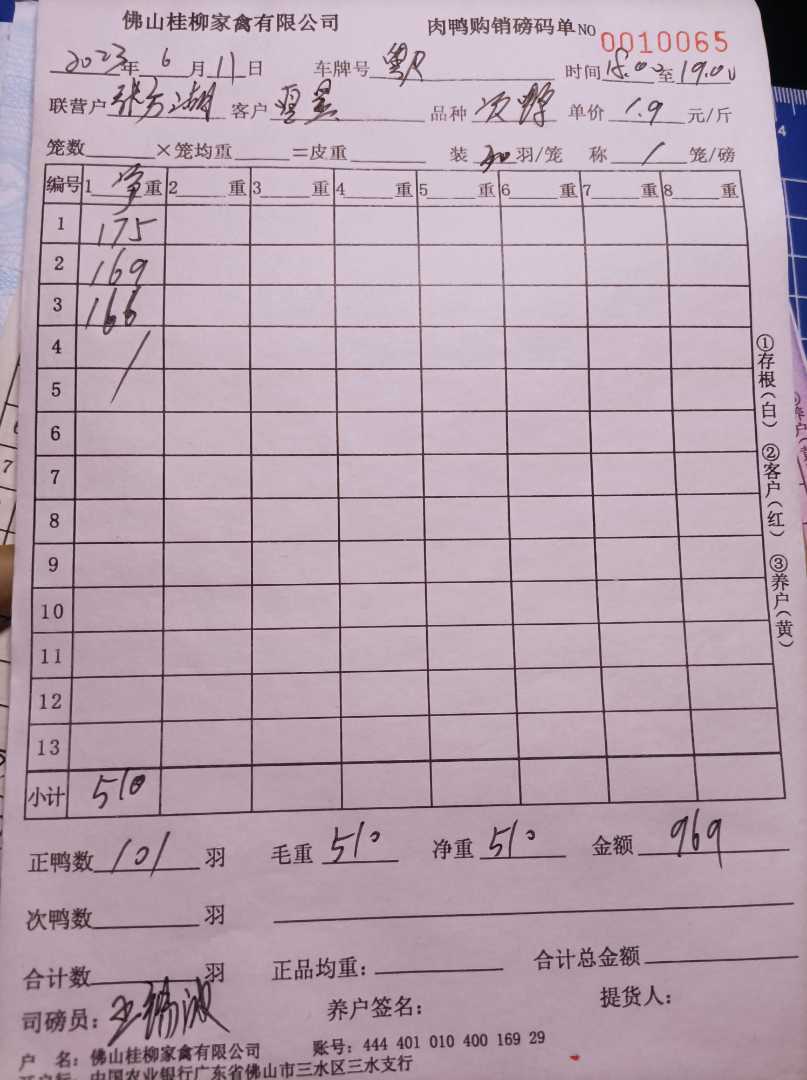 佛山桂柳家禽有限公司 肉鸭购销磅码单 NO 0010065
2023年 6 月 11 日 车牌号 时间 18.00 至 19.00
联营户 客户 品种 次鸭 单价 1.9 元/斤
笼数 ×笼均重 =皮重 装 羽/笼 称 / 笼/磅
编号 1 净 重 2 重 3 重 4 重 5 重 6 重 7 重 8 重
1 175
2 169
3 166
4 /
5
6
7
8
9
10
11
12
13
小计 510
正鸭数 101 羽 毛重 510 净重 510 金额 969
次鸭数 羽
合计数 羽 正品均重: 合计总金额
司磅员: 养户签名: 提货人:
户 名: 佛山桂柳家禽有限公司 账号: 444 401 010 400 169 29
开户行: 中国农业银行广东省佛山市三水区三水支行
①存根(白) ②客户(红) ③养户(黄)